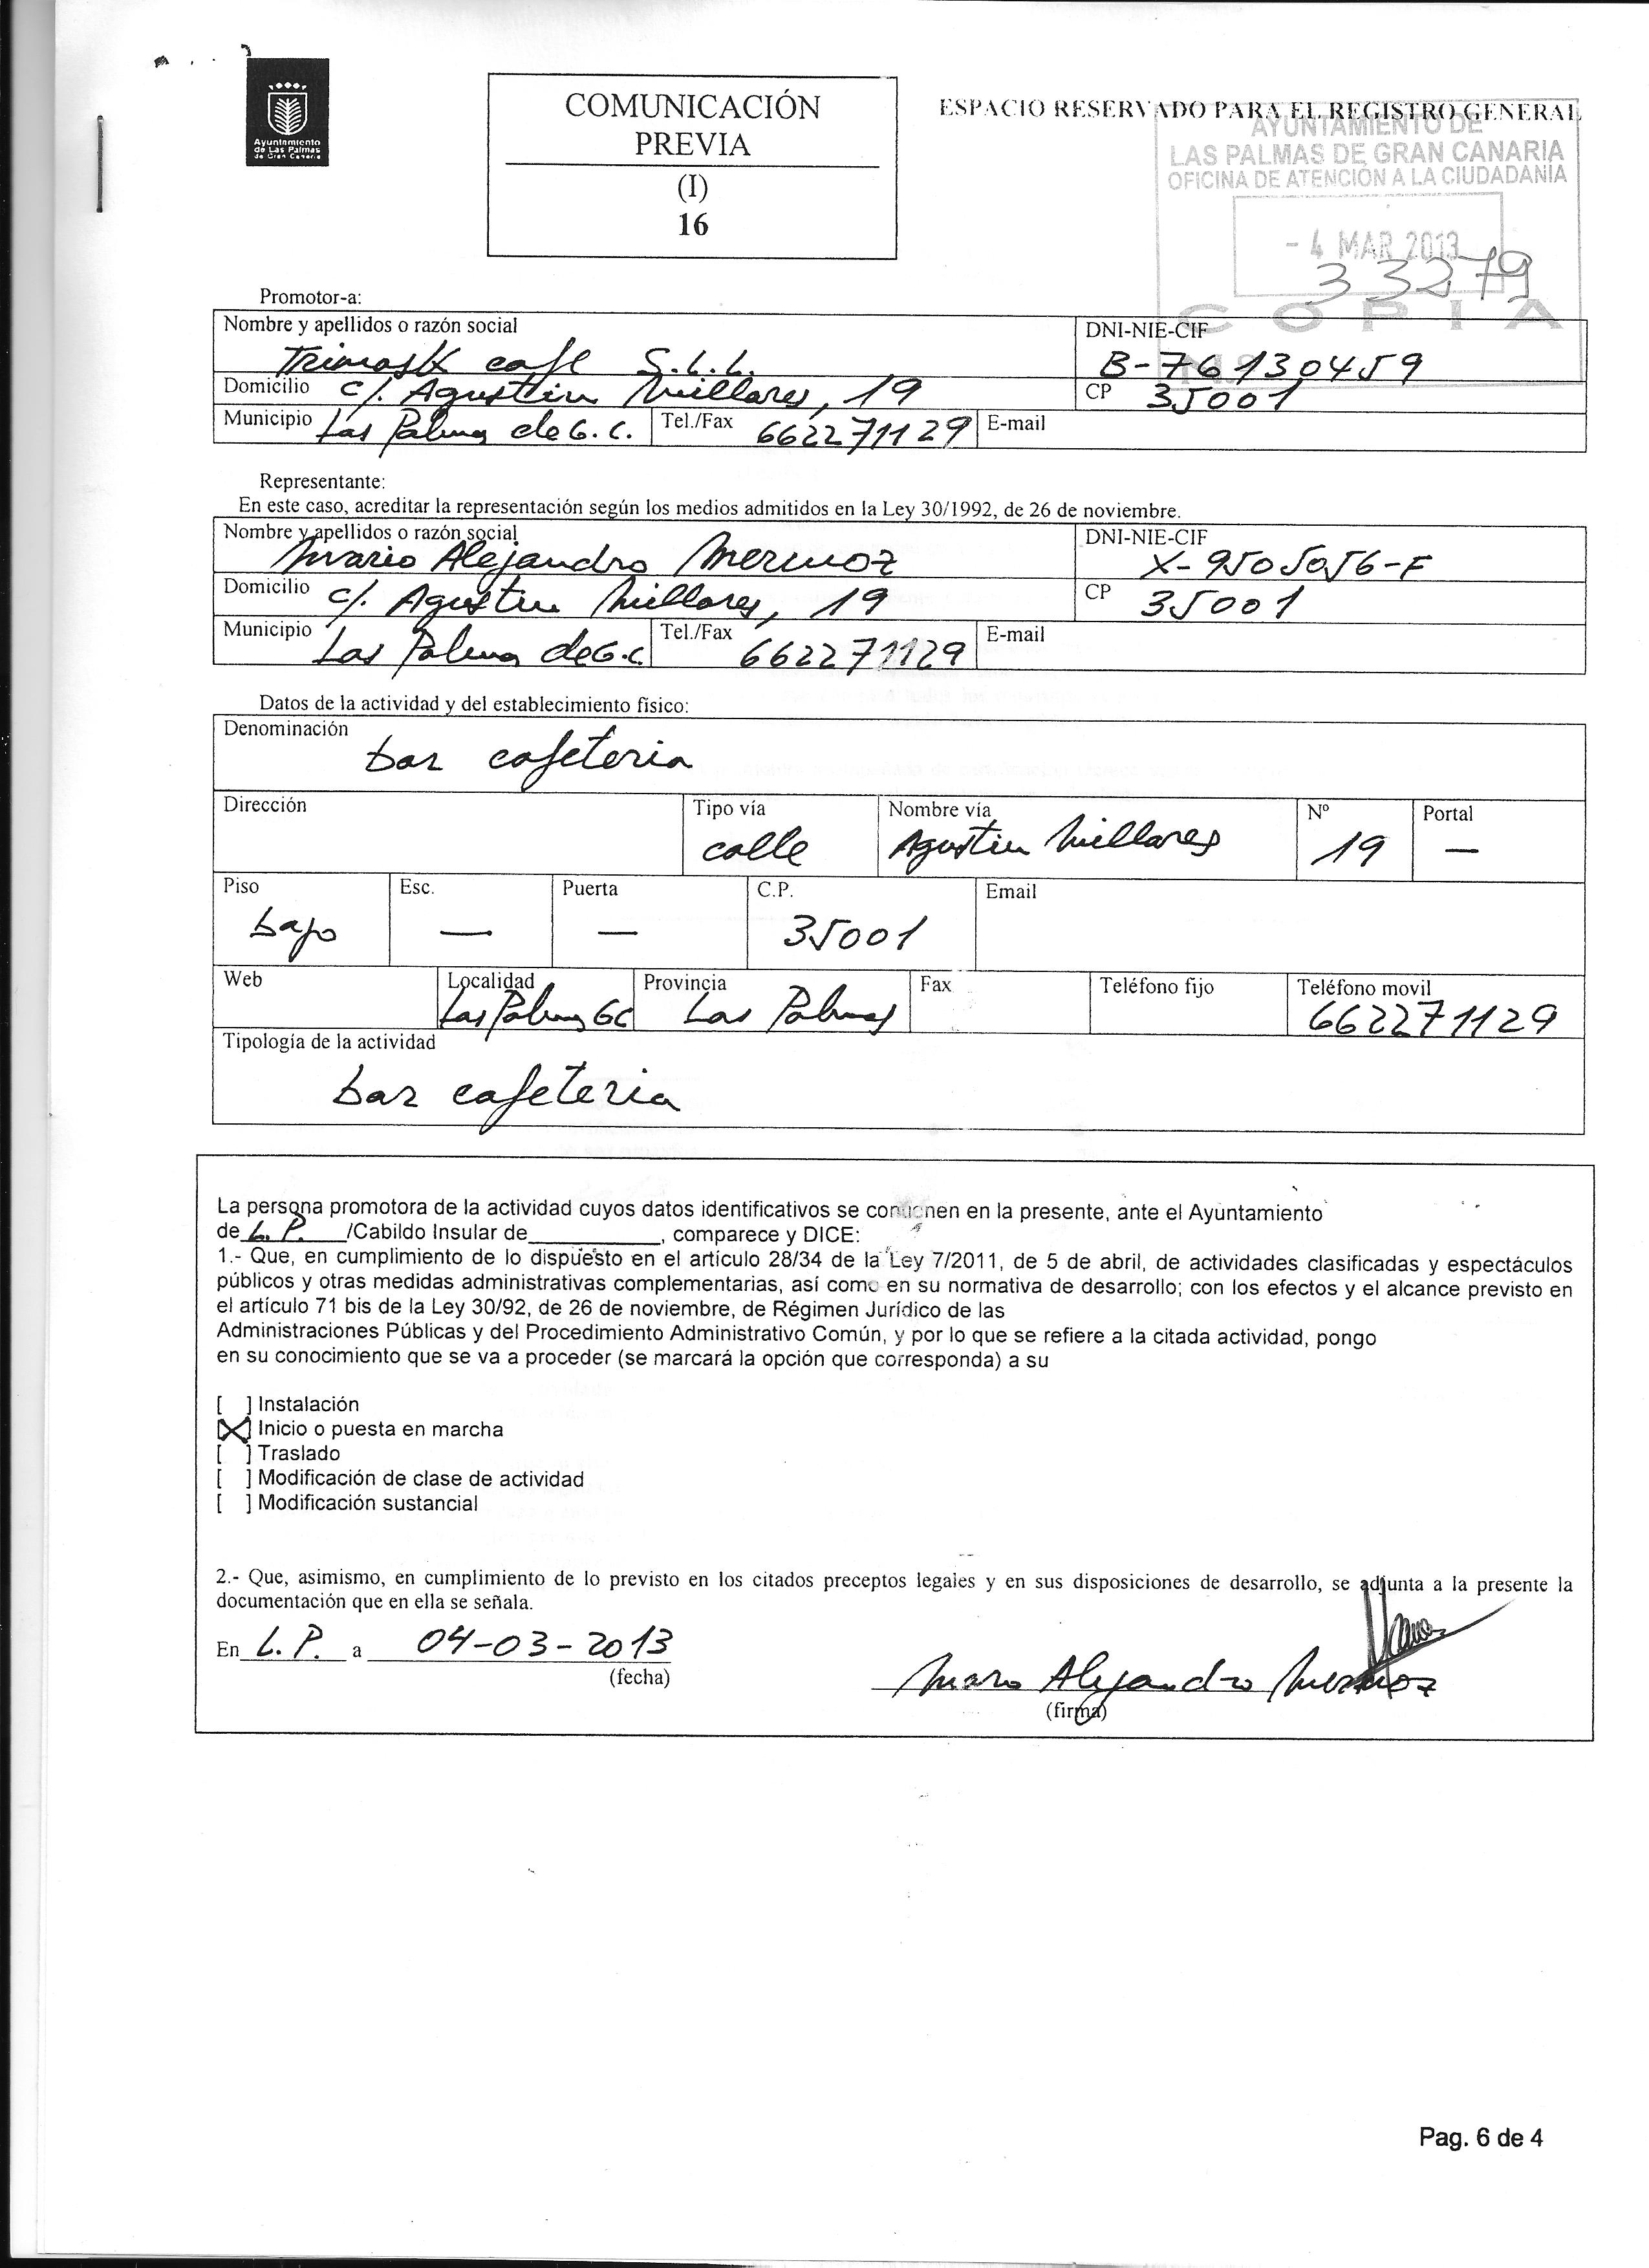 Ayuntamiento
de Las Palmas
de Gran Canaria
COMUNICACIÓN
PREVIA
(I)
16
ESPACIO RESERVADO PARA EL REGISTRO GENERAL
AYUNTAMIENTO DE
LAS PALMAS DE GRAN CANARIA
OFICINA DE ATENCIÓN A LA CIUDADANÍA
- 4 MAR 2013
33279
COPIA
Promotor-a:
Nombre y apellidos o razón social DNI-NIE-CIF
cafe S.L.L. B-76130459
Domicilio c/. Agustin Millares, 19 CP 35001
Municipio Las Palmas de G.C. Tel./Fax 662271129 E-mail
Representante:
En este caso, acreditar la representación según los medios admitidos en la Ley 30/1992, de 26 de noviembre.
Nombre y apellidos o razón social DNI-NIE-CIF
Mario Alejandro Mermoz X-9505056-F
Domicilio c/. Agustin Millares, 19 CP 35001
Municipio Las Palmas de G.C Tel./Fax 662271129 E-mail
Datos de la actividad y del establecimiento físico:
Denominación
bar cafeteria
Dirección Tipo vía Nombre vía Nº Portal
calle Agustin Millares 19 —
Piso Esc. Puerta C.P. Email
bajo — — 35001
Web Localidad Provincia Fax Teléfono fijo Teléfono movil
Las Palmas GC Las Palmas 662271129
Tipología de la actividad
bar cafeteria
La persona promotora de la actividad cuyos datos identificativos se contienen en la presente, ante el Ayuntamiento
de L. P. /Cabildo Insular de__________, comparece y DICE:
1.- Que, en cumplimiento de lo dispuesto en el artículo 28/34 de la Ley 7/2011, de 5 de abril, de actividades clasificadas y espectáculos
públicos y otras medidas administrativas complementarias, así como en su normativa de desarrollo; con los efectos y el alcance previsto en
el artículo 71 bis de la Ley 30/92, de 26 de noviembre, de Régimen Jurídico de las
Administraciones Públicas y del Procedimiento Administrativo Común, y por lo que se refiere a la citada actividad, pongo
en su conocimiento que se va a proceder (se marcará la opción que corresponda) a su
[ ] Instalación
[X] Inicio o puesta en marcha
[ ] Traslado
[ ] Modificación de clase de actividad
[ ] Modificación sustancial
2.- Que, asimismo, en cumplimiento de lo previsto en los citados preceptos legales y en sus disposiciones de desarrollo, se adjunta a la presente la
documentación que en ella se señala.
En L. P. a 04-03-2013
(fecha)
Mario Alejandro Mermoz
(firma)
Pag. 6 de 4